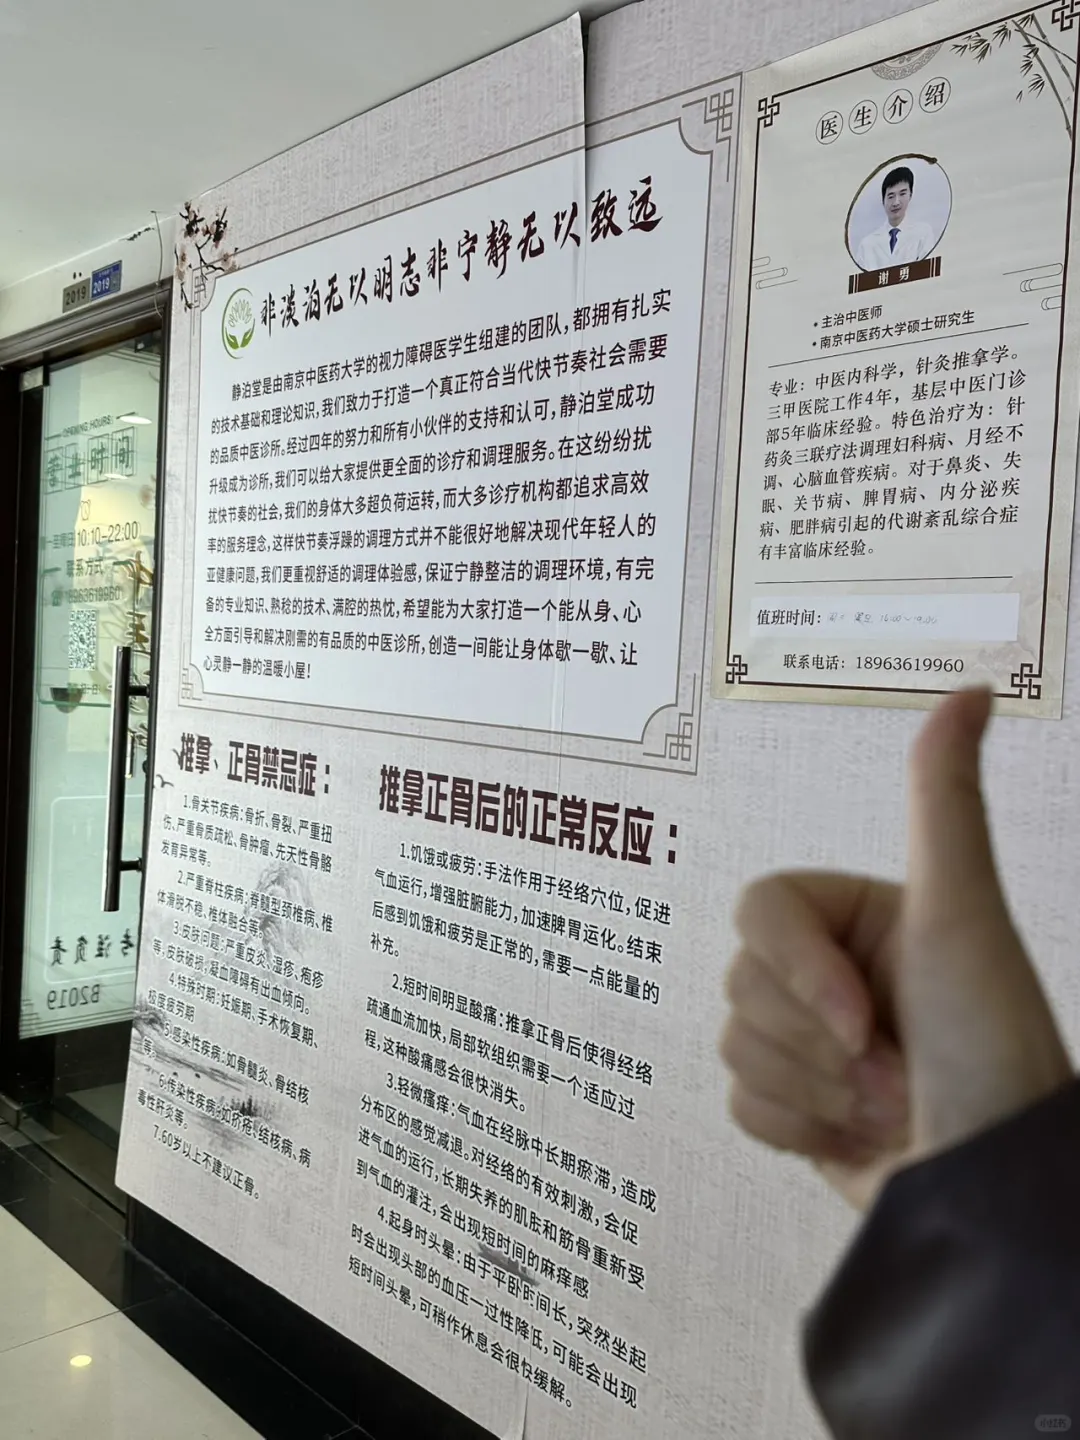 2019
2019
OPENING HOURS
10:10-22:00
联系方式
18963619960
B2019
非淡泊无以明志非宁静无以致远
静泊堂是由南京中医药大学的视力障碍医学生组建的团队，都拥有扎实
的技术基础和理论知识，我们致力于打造一个真正符合当代快节奏社会需要
的品质中医诊所。经过四年的努力和所有小伙伴的支持和认可，静泊堂成功
升级成为诊所，我们可以给大家提供更全面的诊疗和调理服务。在这纷纷扰
扰快节奏的社会，我们的身体大多超负荷运转，而大多诊疗机构都追求高效
率的服务理念，这样快节奏浮躁的调理方式并不能很好地解决现代年轻人的
亚健康问题，我们更重视舒适的调理体验感，保证宁静整洁的调理环境，有完
备的专业知识、熟稔的技术、满腔的热忱，希望能为大家打造一个能从身、心
全方面引导和解决刚需的有品质的中医诊所，创造一间能让身体歇一歇、让
心灵静一静的温暖小屋！
推拿、正骨禁忌症：
1.骨关节疾病：骨折、骨裂、严重扭
伤、严重骨质疏松、骨肿瘤、先天性骨骼
发育异常等。
2.严重脊柱疾病：脊髓型颈椎病、椎
体滑脱不稳、椎体融合等。
3.皮肤问题：严重皮炎、湿疹、疱疹
等，皮肤破损，凝血障碍有出血倾向。
4.特殊时期：妊娠期、手术恢复期、
极度疲劳期
5.感染性疾病：如骨髓炎、骨结核
等。
6.传染性疾病：如疥疮、结核病、病
毒性肝炎等。
7.60岁以上不建议正骨。
推拿正骨后的正常反应：
1.饥饿或疲劳：手法作用于经络穴位，促进
气血运行，增强脏腑能力，加速脾胃运化。结束
后感到饥饿和疲劳是正常的，需要一点能量的
补充。
2.短时间明显酸痛：推拿正骨后使得经络
疏通血流加快，局部软组织需要一个适应过
程，这种酸痛感会很快消失。
3.轻微瘙痒：气血在经脉中长期瘀滞，造成
分布区的感觉减退。对经络的有效刺激，会促
进气血的运行，长期失养的肌肤和筋骨重新受
到气血的灌注，会出现短时间的麻痒感
4.起身时头晕：由于平卧时间长，突然坐起
时会出现头部的血压一过性降低，可能会出现
短时间头晕，可稍作休息会很快缓解。
医生介绍
谢勇
•主治中医师
•南京中医药大学硕士研究生
专业：中医内科学，针灸推拿学。
三甲医院工作4年，基层中医门诊
部5年临床经验。特色治疗为：针
药灸三联疗法调理妇科病、月经不
调、心脑血管疾病。对于鼻炎、失
眠、关节病、脾胃病、内分泌疾
病、肥胖病引起的代谢紊乱综合症
有丰富临床经验。
值班时间：
联系电话：18963619960
小红书